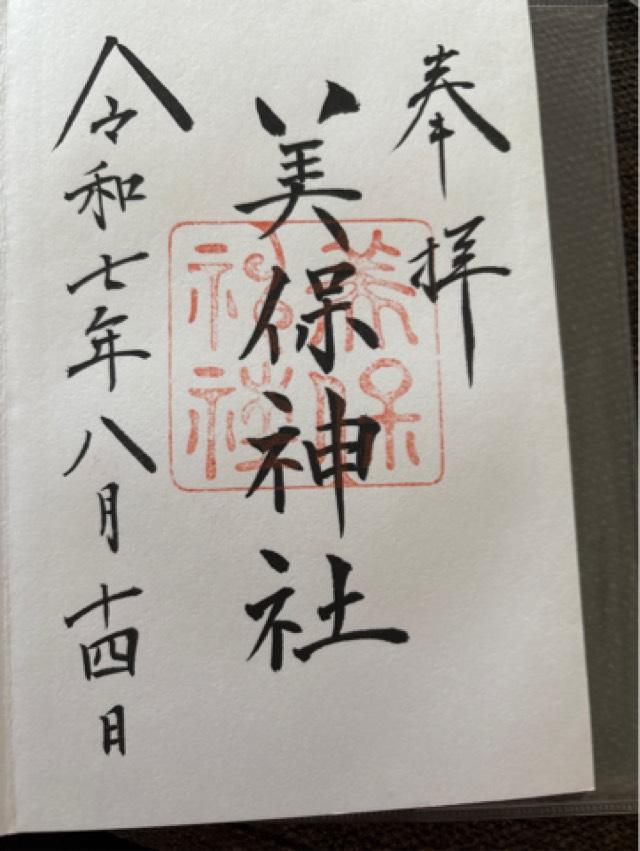 奉拝
美保神社
美保
神社
令和七年八月十四日